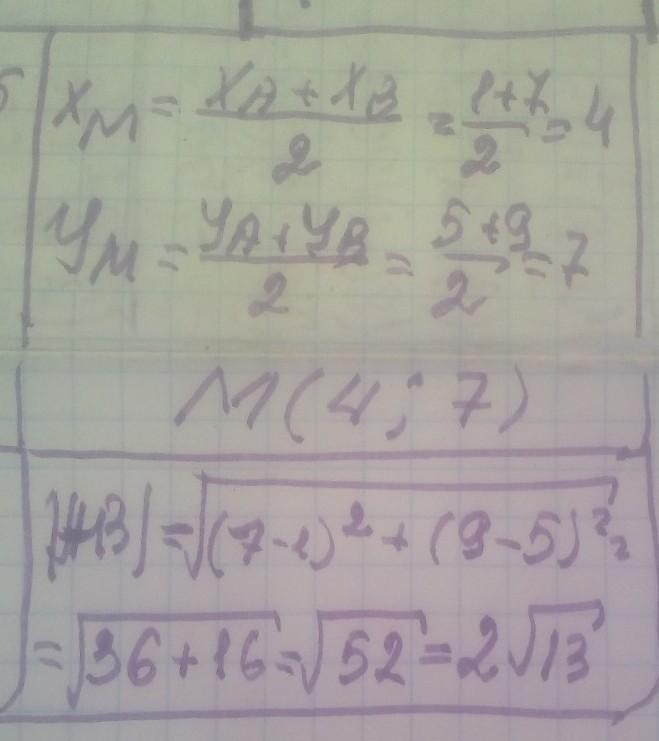 x_M = (x_A + x_B)/2 = (1+7)/2 = 4
y_M = (y_A + y_B)/2 = (5+9)/2 = 7
M(4; 7)
|AB| = √((7-1)² + (9-5)²) =
= √(36+16) = √52 = 2√13